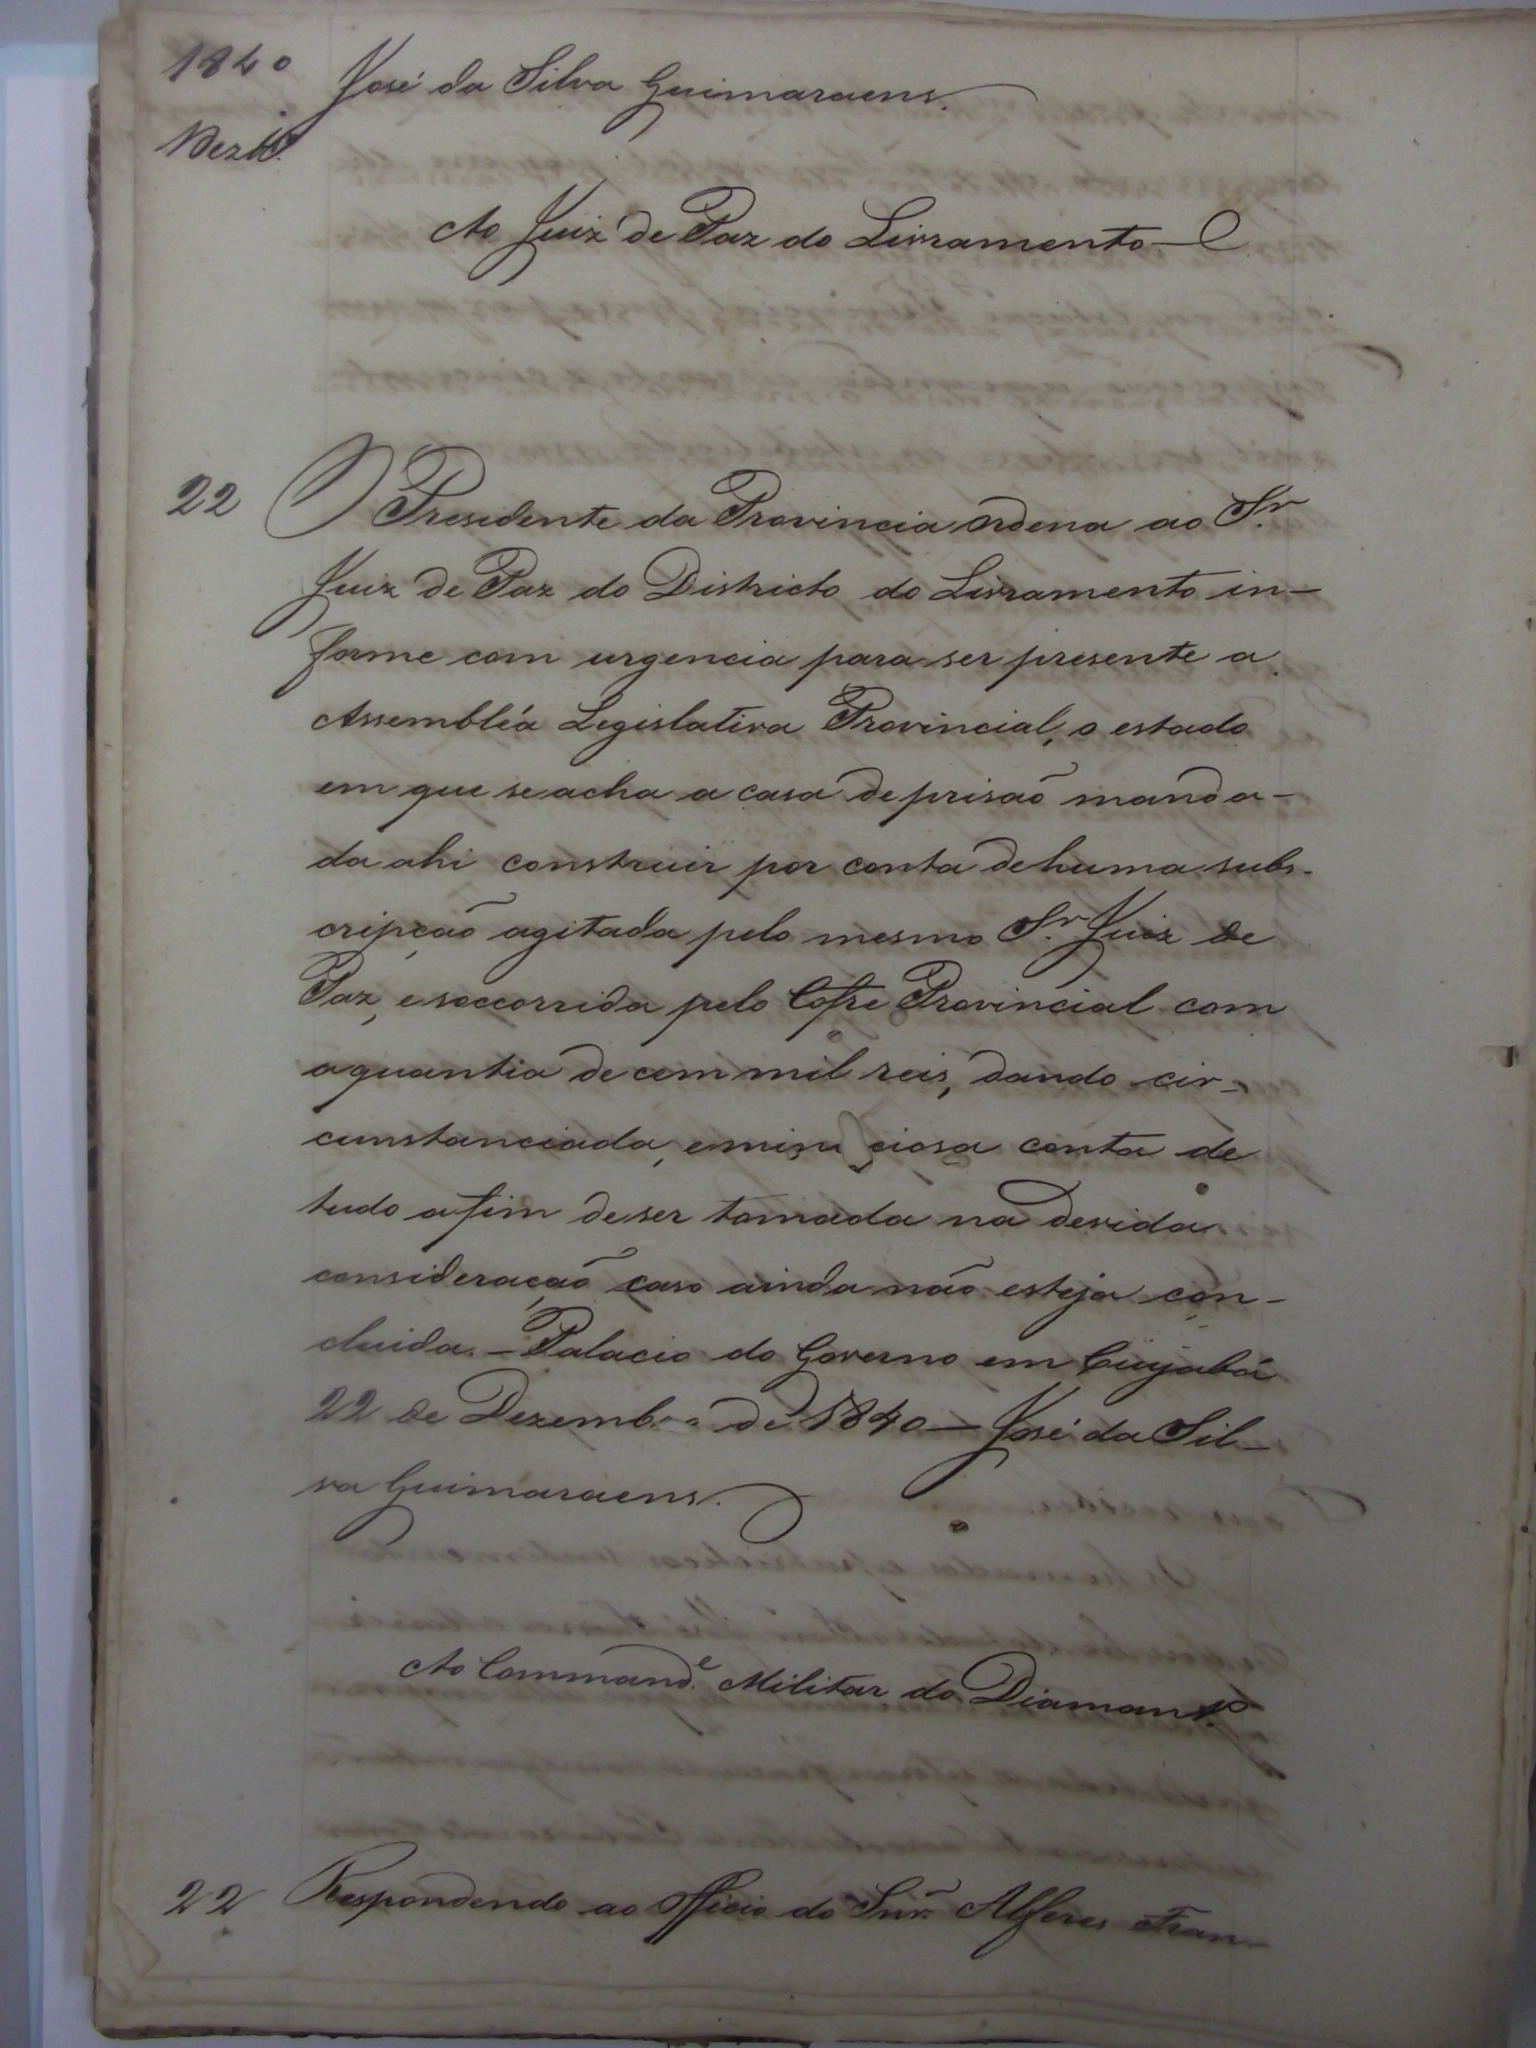 1840
José da Silva Guimaraens.
Dezbro.
Ao Juiz de Paz do Livramento
22
O Presidente da Provincia ordena ao Sr.
Juiz de Paz do Districto do Livramento in-
forme com urgencia para ser presente a
Assembléa Legislativa Provincial, o estado
em que se acha a casa de prisaõ manda-
da ahi construir por conta de huma subs-
cripçaõ agitada pelo mesmo Sr. Juiz de
Paz, e soccorrida pelo Cofre Provincial com
a quantia de cem mil reis, dando cir-
cunstanciada, e minuciosa conta de
tudo a fim de ser tomada na devida
consideraçaõ caso ainda não esteja con-
cluida. - Palacio do Governo em Cuyabá
22 de Dezembro de 1840 - José da Sil-
va Guimaraens.
Ao Commande. Militar do Diamantno.
22
Respondendo ao Officio do Snr. Alferes Fran-